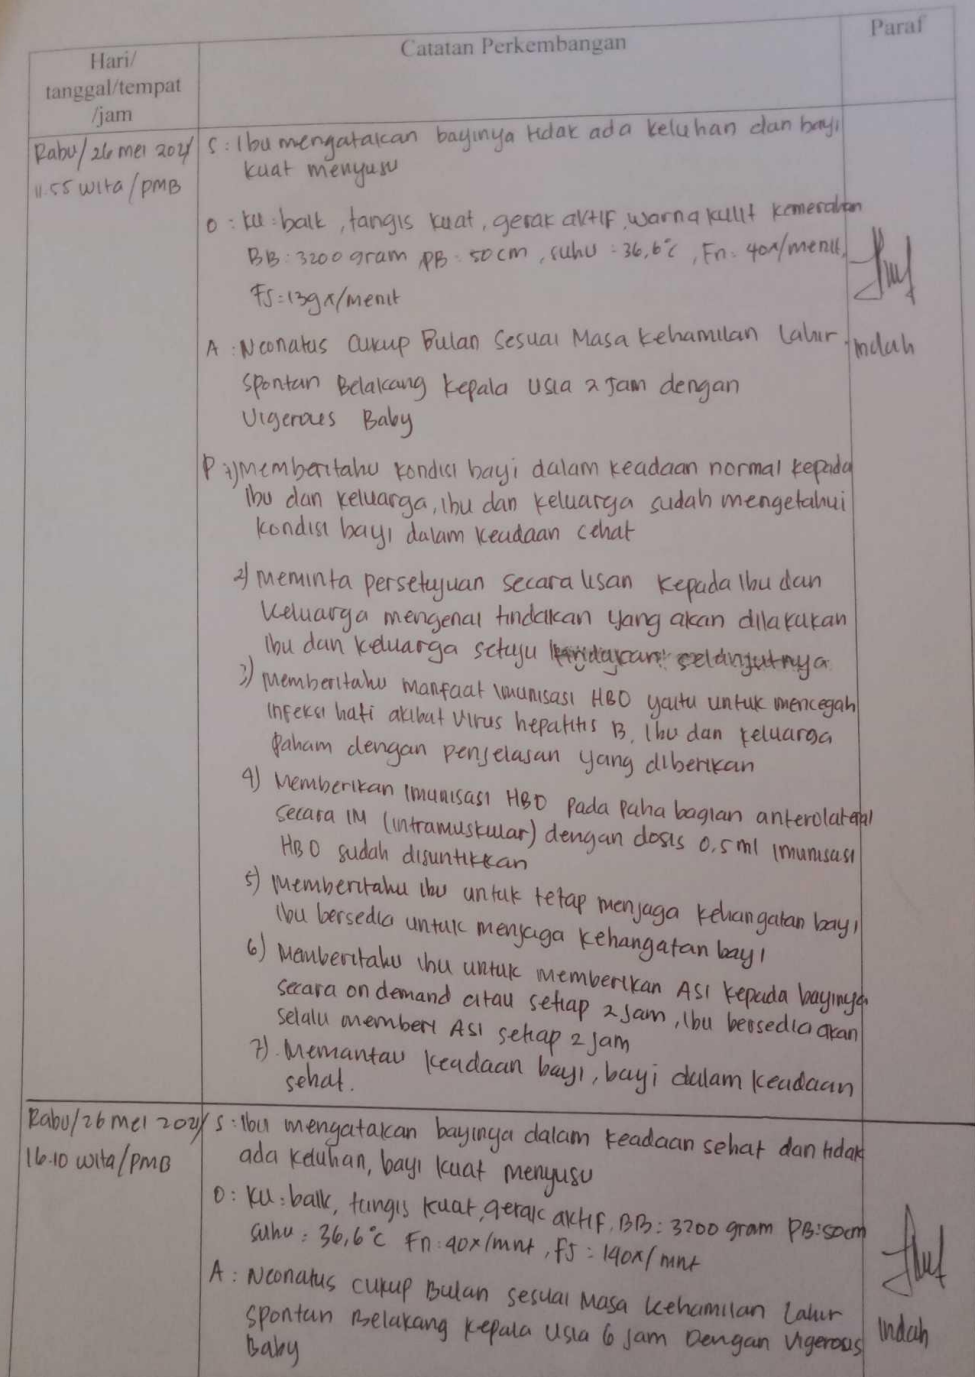 Hari/
tanggal/tempat
/jam
Catatan Perkembangan
Paraf
Rabu/26 mei 2021/
11.55 wita/PMB
S : Ibu mengatakan bayinya tidak ada keluhan dan bayi
kuat menyusu
O : KU : baik, tangis kuat, gerak aktif, warna kulit kemerahan
BB : 3200 gram PB : 50 cm, suhu : 36,6°c, Fn : 40x/menit,
FJ : 139x/menit
A : Neonatus Cukup Bulan Sesuai Masa Kehamilan Lahir
Spontan Belakang Kepala Usia 2 Jam dengan
Vigerous Baby
Indah
P 1) Memberitahu kondisi bayi dalam keadaan normal kepada
ibu dan keluarga, ibu dan keluarga sudah mengetahui
kondisi bayi dalam keadaan sehat
2) Meminta persetujuan secara lisan kepada ibu dan
keluarga mengenai tindakan yang akan dilakukan
ibu dan keluarga setuju tindakan selanjutnya
3) Memberitahu manfaat imunisasi HBO yaitu untuk mencegah
infeksi hati akibat virus hepatitis B, Ibu dan keluarga
paham dengan penjelasan yang diberikan
4) Memberikan imunisasi HBO pada paha bagian anterolateral
secara IM (intramuskular) dengan dosis 0,5 ml imunisasi
HBO sudah disuntikkan
5) Memberitahu ibu untuk tetap menjaga kehangatan bayi
ibu bersedia untuk menjaga kehangatan bayi
6) Memberitahu ibu untuk memberikan ASI kepada bayinya
secara on demand atau setiap 2 jam, ibu bersedia akan
selalu memberi ASI setiap 2 jam
7) Memantau keadaan bayi, bayi dalam keadaan
sehat.
Rabu/26 mei 2021/
16.10 wita/PMB
S : Ibu mengatakan bayinya dalam keadaan sehat dan tidak
ada keluhan, bayi kuat menyusu
O : KU : baik, tangis kuat, gerak aktif, BB : 3200 gram PB : 50cm
suhu : 36,6°c Fn : 40x/mnt, FJ : 140x/mnt
A : Neonatus cukup Bulan sesuai Masa kehamilan Lahir
Spontan Belakang kepala Usia 6 Jam Dengan Vigerous
Baby
Indah